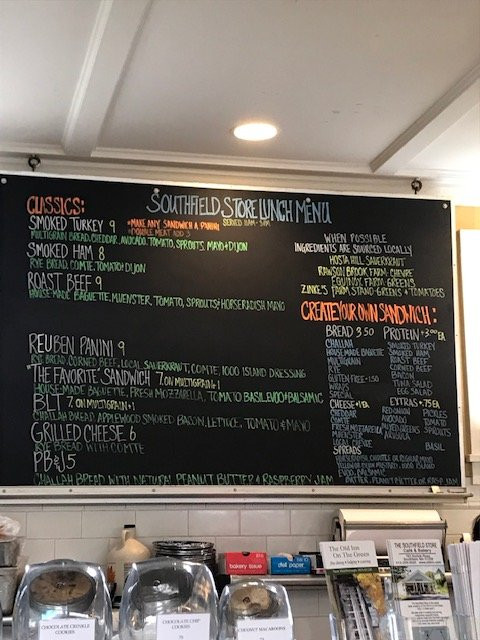 SOUTHFIELD STORE LUNCH MENU
SERVED 11AM - 3PM
CLASSICS:
SMOKED TURKEY 9
*MAKE ANY SANDWICH A PANINI
*DOUBLE MEAT ADD 3
MULTIGRAIN BREAD, CHEDDAR, AVOCADO, TOMATO, SPROUTS, MAYO + DIJON
SMOKED HAM 8
RYE BREAD, COMTE, TOMATO + DIJON
ROAST BEEF 9
HOUSE-MADE BAGUETTE, MUENSTER, TOMATO, SPROUTS + HORSERADISH MAYO
REUBEN PANINI 9
RYE BREAD, CORNED BEEF, LOCAL SAUERKRAUT, COMTE, 1000 ISLAND DRESSING
"THE FAVORITE" SANDWICH 7 ON MULTIGRAIN +1
HOUSE-MADE BAGUETTE, FRESH MOZZARELLA, TOMATO BASIL EVOO + BALSAMIC
BLT 7 ON MULTIGRAIN +1
CHALLAH BREAD, APPLEWOOD SMOKED BACON, LETTUCE, TOMATO + MAYO
GRILLED CHEESE 6
RYE BREAD WITH COMTE
PB & J 5
CHALLAH BREAD WITH NATURAL PEANUT BUTTER & RASPBERRY JAM
WHEN POSSIBLE
INGREDIENTS ARE SOURCED LOCALLY
HOSTA HILL: SAUERKRAUT
RAWSON BROOK FARM: CHEVRE
EQUINOX FARM: GREENS
FARM STAND: GREENS + TOMATOES
CREATE YOUR OWN SANDWICH:
BREAD 3.50
CHALLAH
HOUSE MADE BAGUETTE
MULTIGRAIN
RYE
GLUTEN FREE +1.50
SPECIAL
PROTEIN +3.00 EA
SMOKED TURKEY
SMOKED HAM
ROAST BEEF
CORNED BEEF
BACON
TUNA SALAD
EGG SALAD
CHEESE +1 EA
CHEDDAR
COMTE
FRESH MOZZARELLA
MUENSTER
LOCAL CHEVRE
EXTRAS +.75 EA
RED ONION
AVOCADO
ARUGULA
PICKLES
TOMATO
SPROUTS
BASIL
SPREADS
BUTTER, PEANUT BUTTER OR RASP JAM
bakery tissue
deli paper
CHOCOLATE CRINKLE
COOKIES
CHOCOLATE CHIP
COOKIES
COCONUT MACAROONS
The Old Inn
On The Green
THE SOUTHFIELD STORE
Café & Bakery